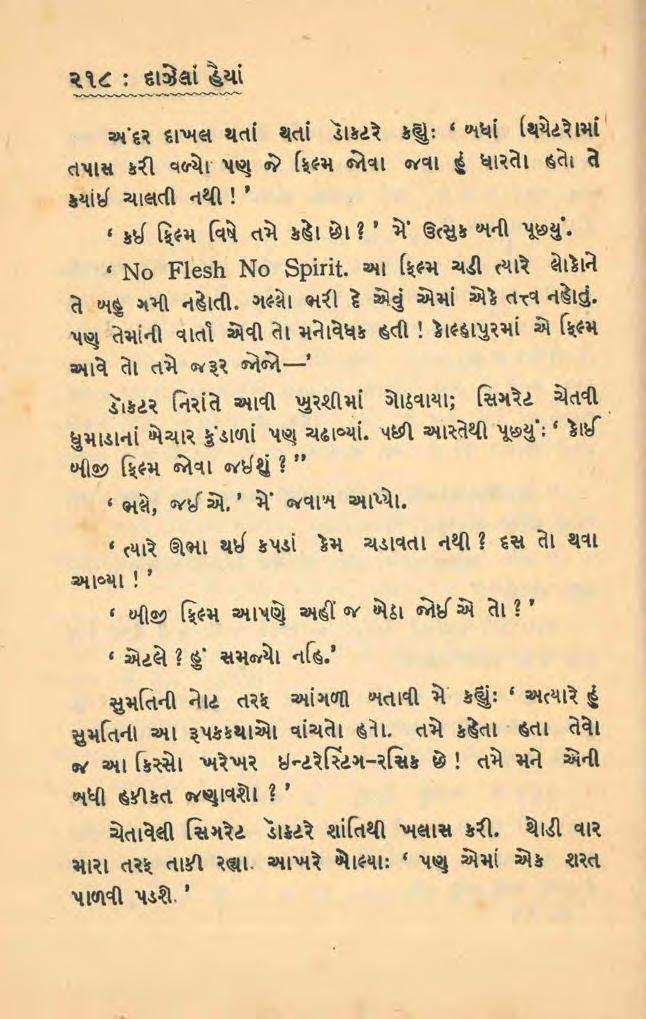 ૨૧૮ : દાઝેલાં હૈયાં
અંદર દાખલ થતાં થતાં ડૉકટરે કહ્યું: ‘ બધાં થિયેટરોમાં
તપાસ કરી વળ્યો પણ જે ફિલ્મ જોવા જવા હું ધારતો હતો તે
કયાંઈ ચાલતી નથી ! ’
‘ કઈ ફિલ્મ વિષે તમે કહો છો ? ’ મેં ઉત્સુક બની પૂછ્યું.
‘ No Flesh No Spirit. આ ફિલ્મ ચડી ત્યારે લોકોને
તે બહુ ગમી નહોતી. ગલ્લો ભરી દે એવું એમાં એકે તત્ત્વ નહોતું.
પણ તેમાંની વાર્તા એવી તો મનોવેધક હતી ! કોલ્હાપુરમાં એ ફિલ્મ
આવે તો તમે જરૂર જોજો—’
ડૉકટર નિરાંતે આવી ખુરશીમાં ગોઠવાયા; સિગરેટ ચેતવી
ધુમાડાનાં બેચાર કુંડાળાં પણ ચઢાવ્યાં. પછી આસ્તેથી પૂછ્યું: ‘ કોઈ
બીજી ફિલ્મ જોવા જઈશું ? ”
‘ ભલે, જઈએ. ’ મેં જવાબ આપ્યો.
‘ ત્યારે ઊભા થઈ કપડાં કેમ ચડાવતા નથી ? દસ તો થવા
આવ્યા ! ’
‘ બીજી ફિલ્મ આપણે અહીં જ બેઠા જોઈએ તો ? ’
‘ એટલે ? હું સમજ્યો નહિ.’
સુમતિની નોટ તરફ આંગળી બતાવી મેં કહ્યું: ‘ અત્યારે હું
સુમતિની આ રૂપકકથાઓ વાંચતો હતો. તમે કહેતા હતા તેવો
જ આ કિસ્સો ખરેખર ઇન્ટરેસ્ટિંગ-રસિક છે ! તમે મને એની
બધી હકીકત જણાવશો ? ’
ચેતાવેલી સિગરેટ ડૉકટરે શાંતિથી ખલાસ કરી. થોડી વાર
મારા તરફ તાકી રહ્યા. આખરે બોલ્યા: ‘ પણ એમાં એક શરત
પાળવી પડશે. ’